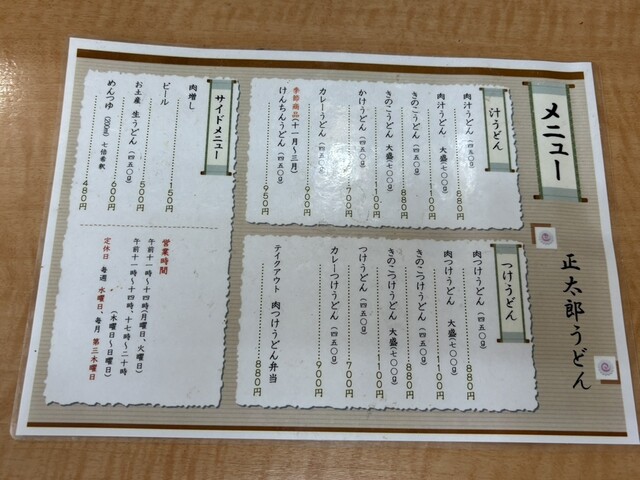 メニュー
正太郎うどん
汁うどん
肉汁うどん（四五〇g）880円
肉汁うどん 大盛（七〇〇g）1100円
きのこうどん（四五〇g）880円
きのこうどん 大盛（七〇〇g）1100円
かけうどん（四五〇g）700円
カレーうどん（四五〇g）900円
季節商品（十一月〜三月）
けんちんうどん（四五〇g）950円
つけうどん
肉つけうどん（四五〇g）880円
肉つけうどん 大盛（七〇〇g）1100円
きのこつけうどん（四五〇g）880円
きのこつけうどん 大盛（七〇〇g）1100円
つけうどん（四五〇g）700円
カレーつけうどん（四五〇g）900円
テイクアウト 肉つけうどん弁当 880円
サイドメニュー
肉増し 150円
ビール 500円
お土産 生うどん（四五〇g）600円
めんつゆ（200ml）七倍希釈 480円
営業時間
午前十一時〜十四時(月曜日、火曜日)
午前十一時〜十四時、十七時〜二十時
(木曜日〜日曜日)
定休日 毎週 水曜日、毎月 第三木曜日